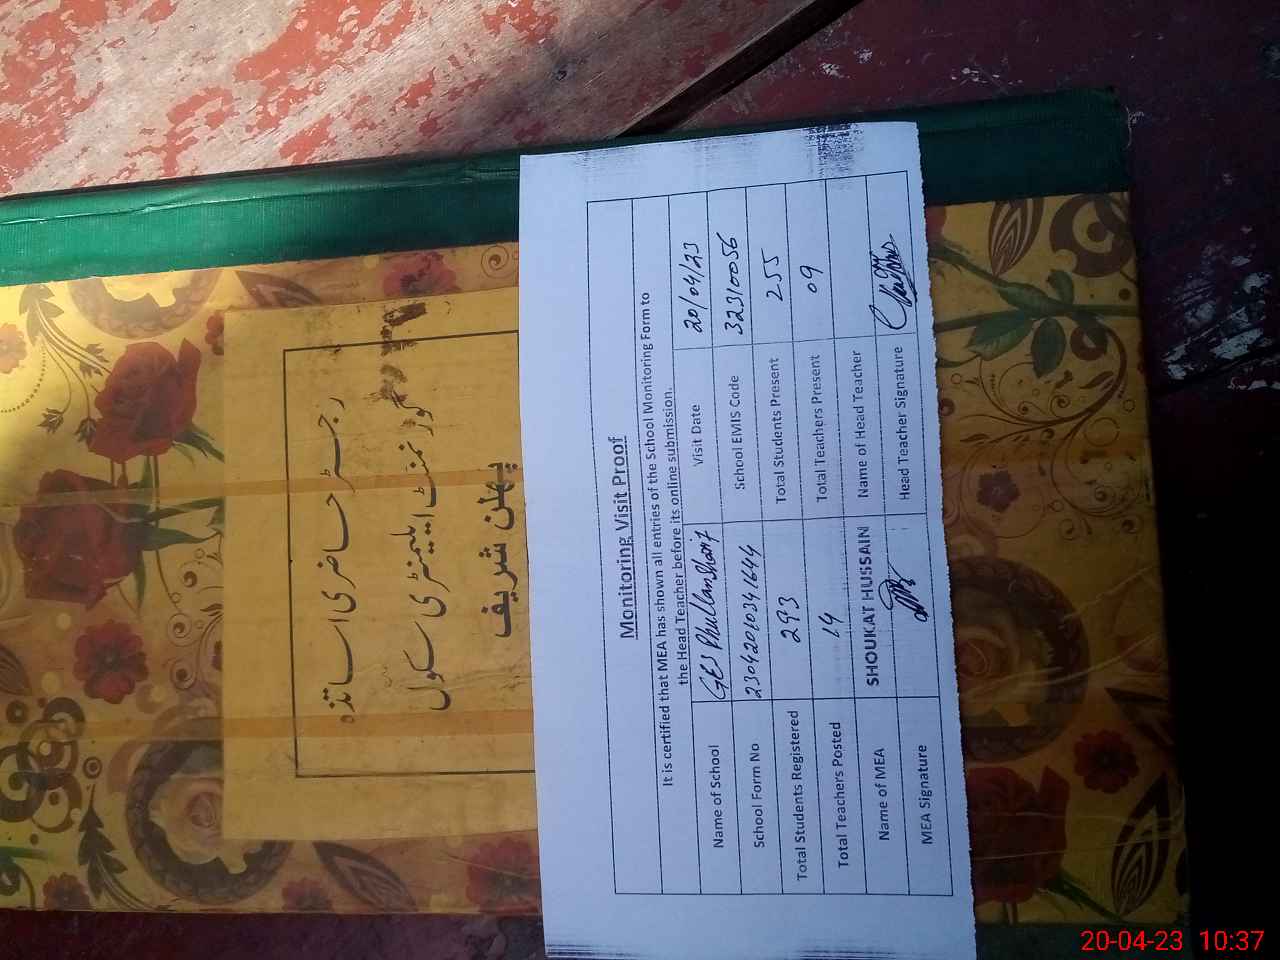 رجسٹر حاضری اساتذہ
گورنمنٹ ایلیمنٹری سکول
پھلن شریف
Monitoring Visit Proof
It is certified that MEA has shown all entries of the School Monitoring Form to
the Head Teacher before its online submission.
Name of School GES Phullan Sharif Visit Date 20/04/23
School Form No 23042010341644 School EMIS Code 32310056
Total Students Registered 293 Total Students Present 255
Total Teachers Posted 14 Total Teachers Present 09
Name of MEA SHOUKAT HUSSAIN Name of Head Teacher
MEA Signature Head Teacher Signature
20-04-23 10:37